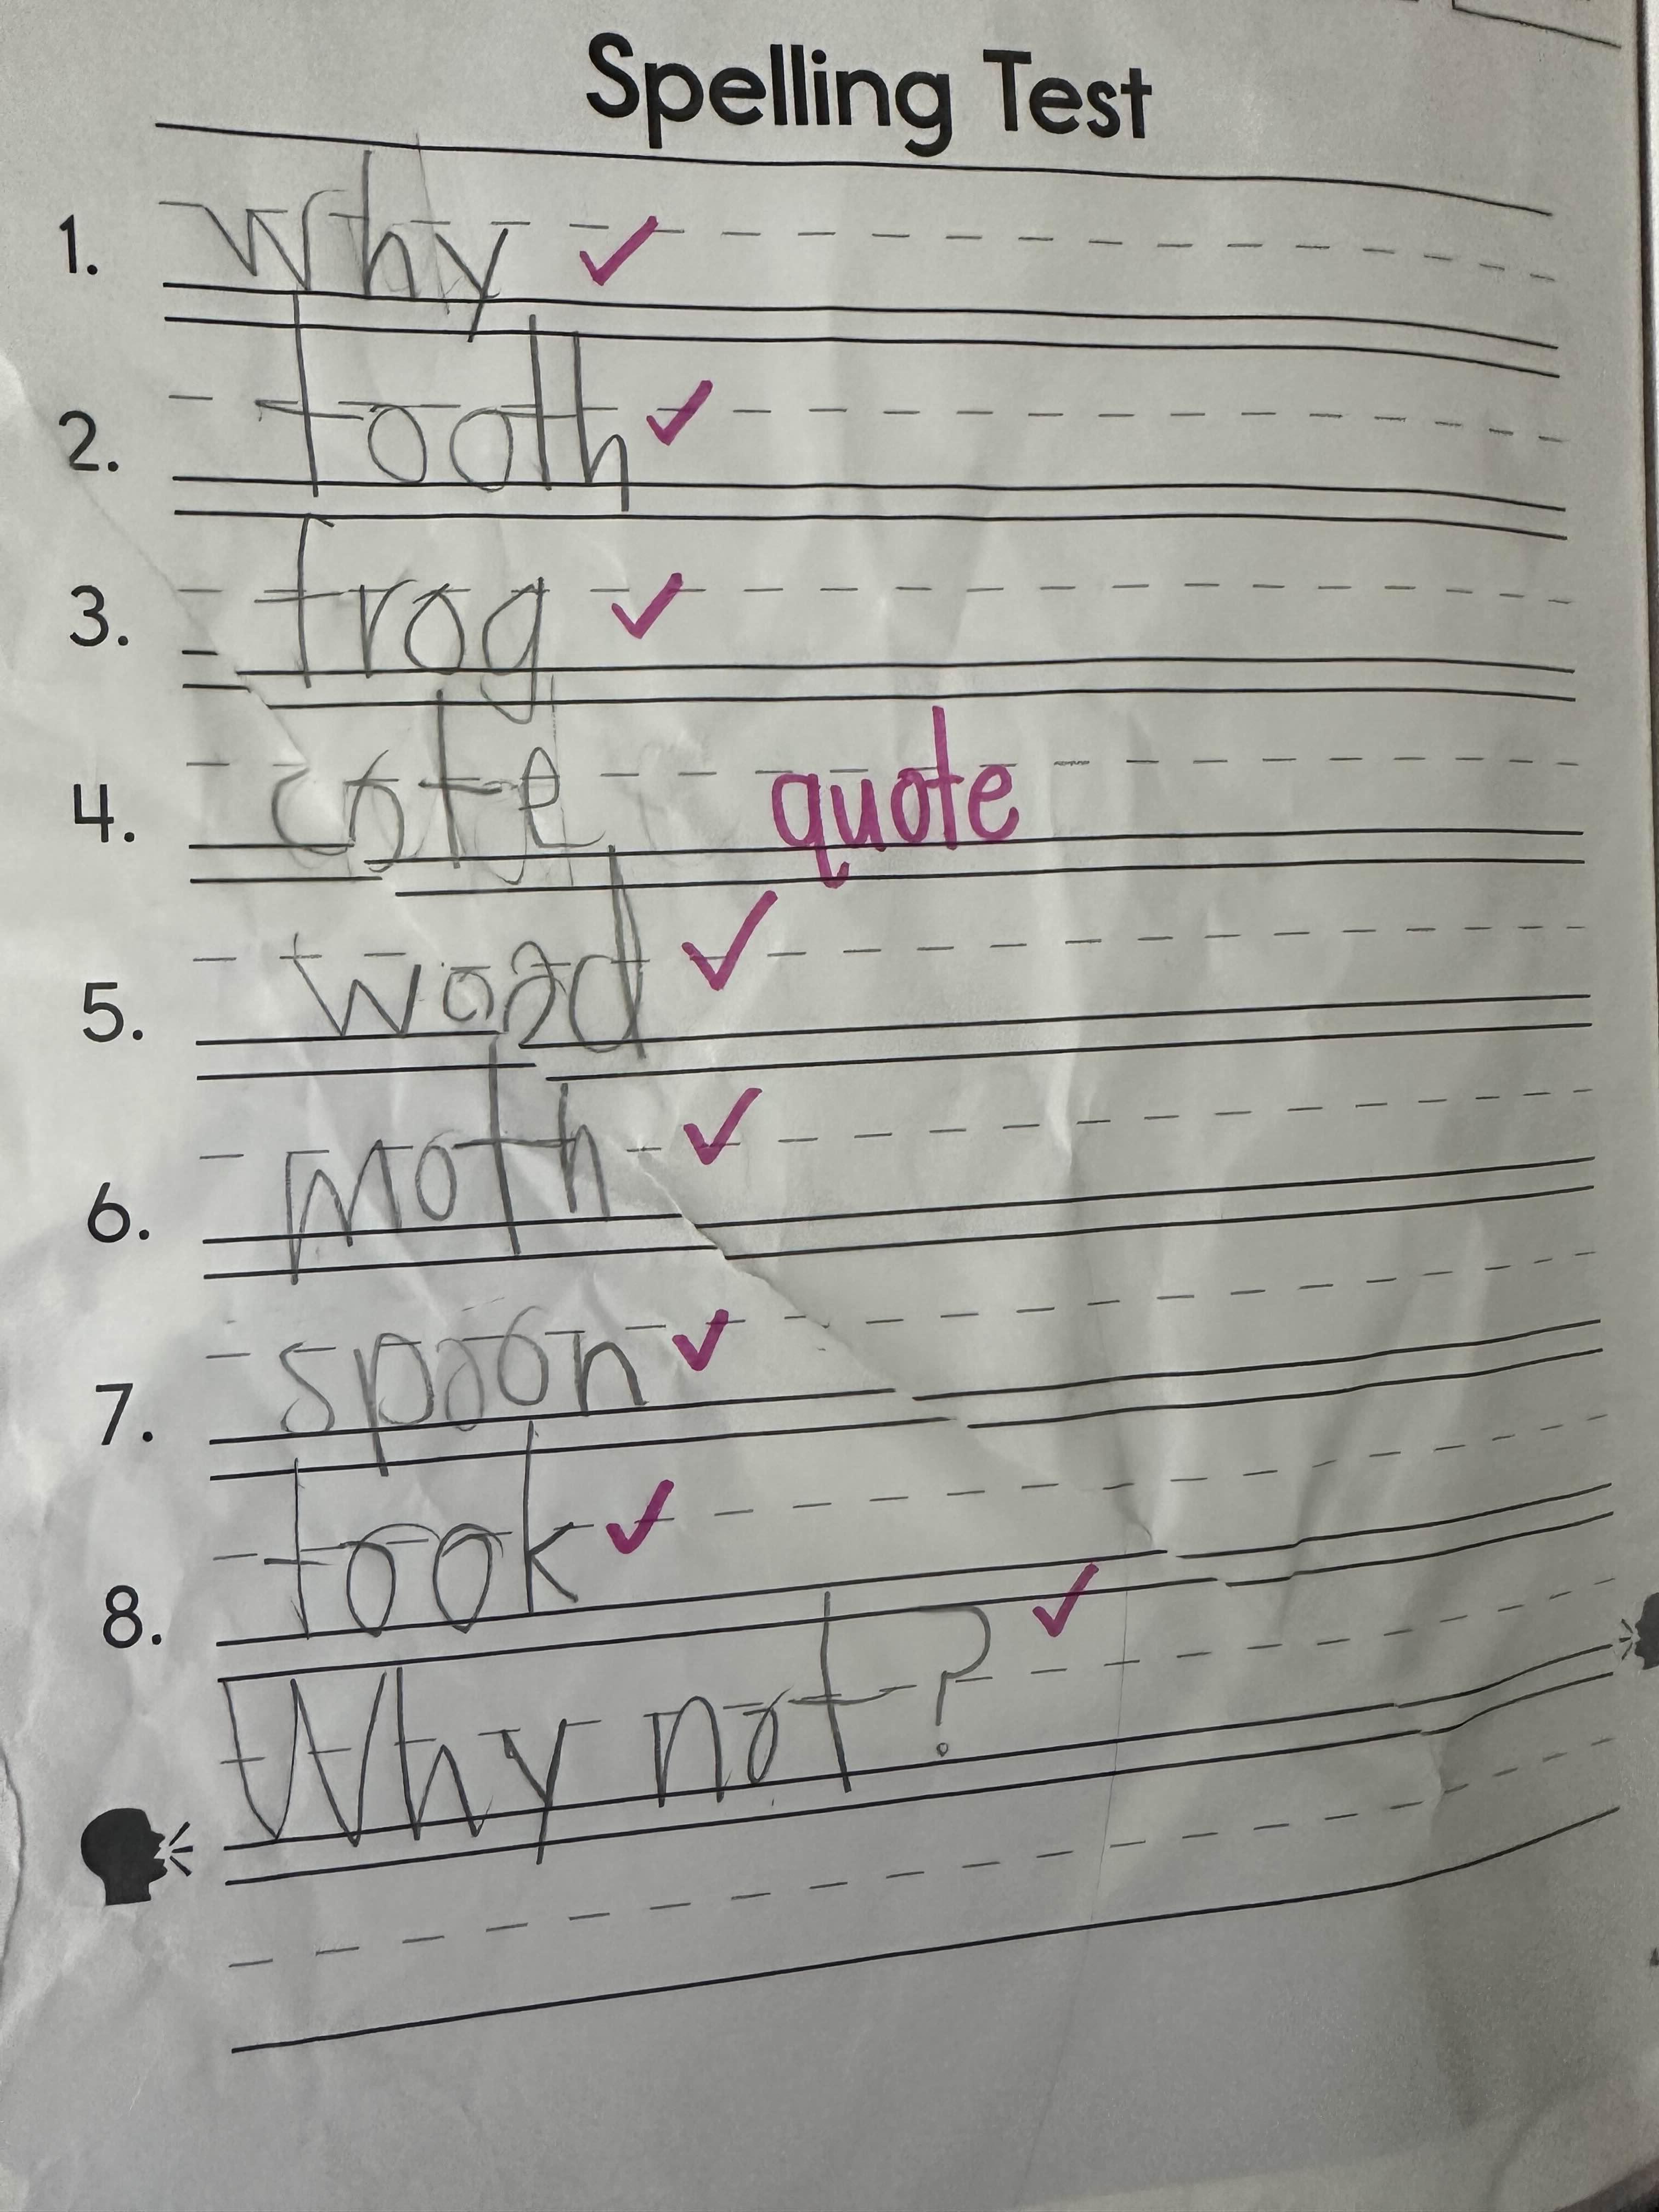 Spelling Test
1. why ✓
2. tooth ✓
3. frog ✓
4. cote quote
5. wood ✓
6. moth ✓
7. spoon ✓
8. took ✓
Why not? ✓